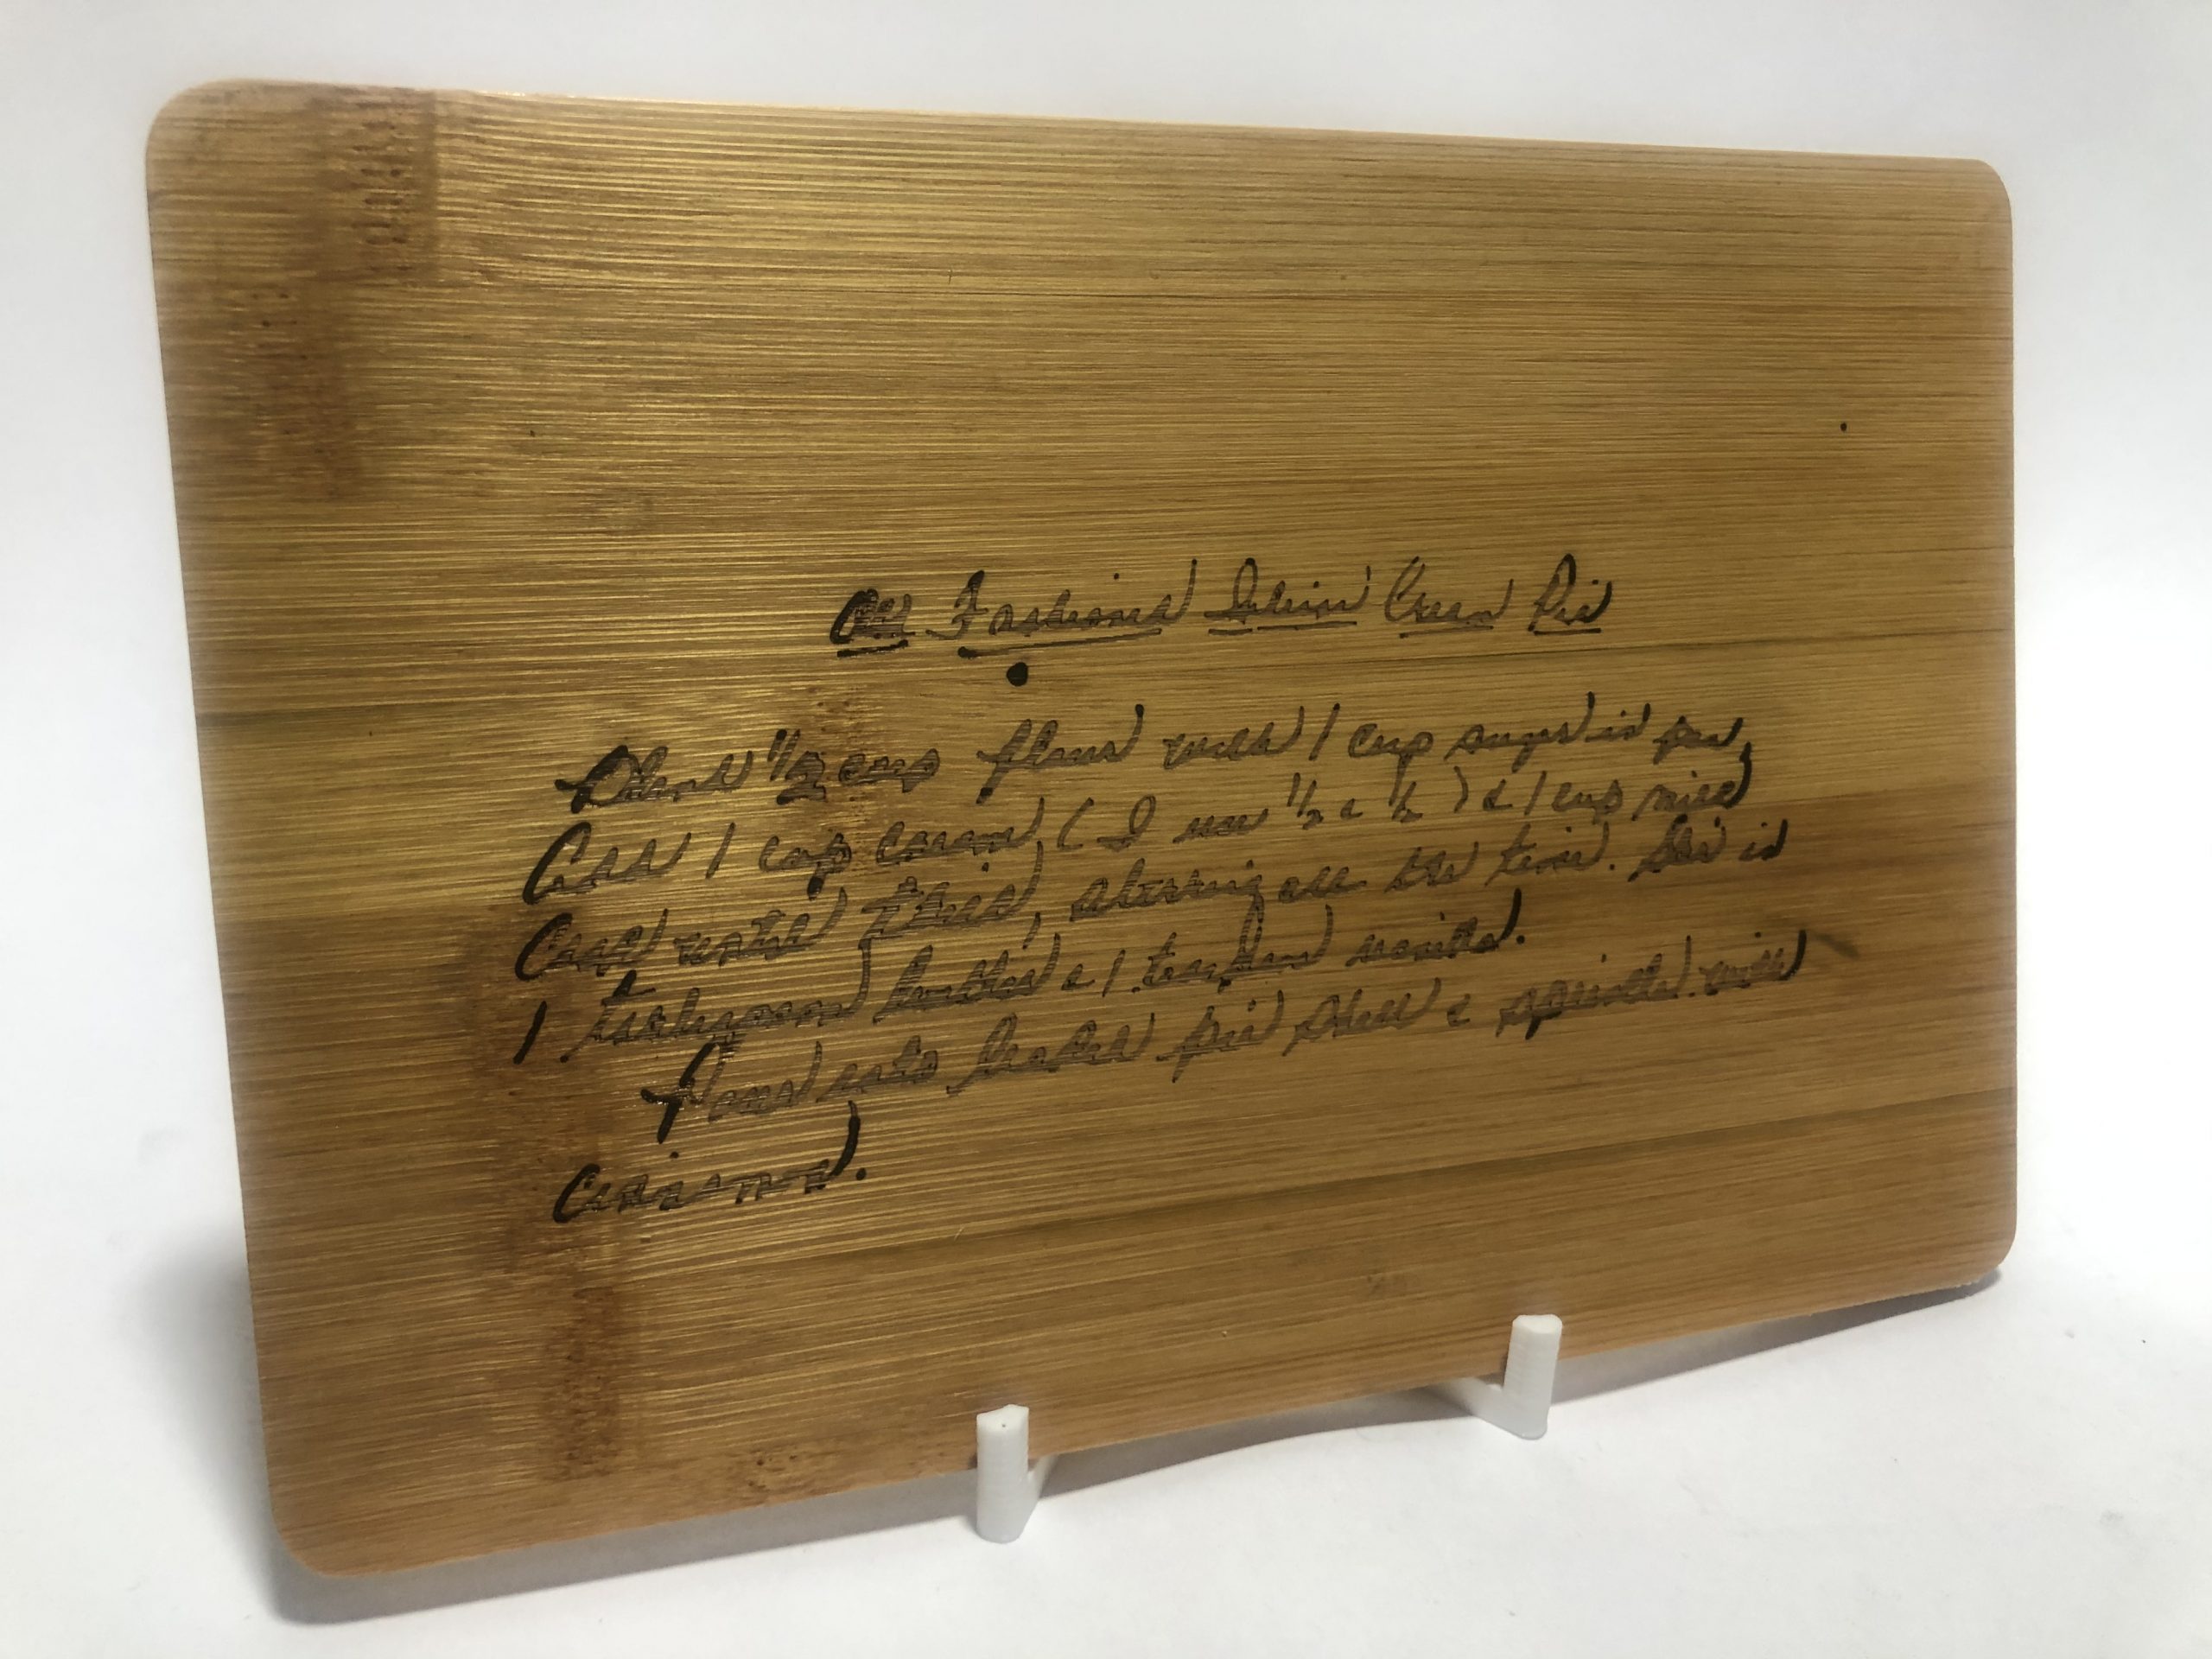 Old Fashioned Cream Pie
Blend 1/2 cup flour with 1 cup sugar in pan,
Add 1 cup cream ( I use 1/2 & 1/2 ) & 1 cup milk
Cook until thick, stirring all the time. Stir in
1 tablespoon butter & 1 teaspoon vanilla.
Pour into baked pie shell & sprinkle with
Cinnamon.